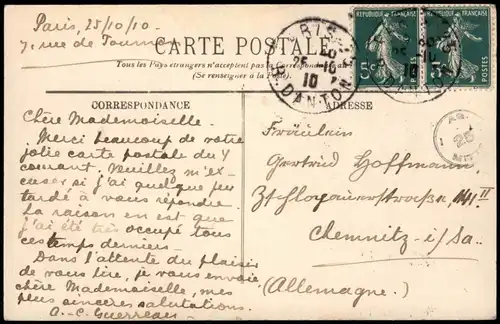 Paris, 25/10/10
7, rue de
CARTE POSTALE
Tous les Pays étrangers n'acceptent pas la Correspondance
(Se renseigner à la Poste).
CORRESPONDANCE
Chère Mademoiselle.
Merci beaucoup de votre
jolie carte postale du 4
courant. Veuillez m'ex-
cuser si j'ai quelque peu
tardé à vous répondre.
La raison en est que
j'ai été très occupé tous
ces temps derniers.
Dans l'attente du plaisir
de vous lire, je vous envoie,
chère Mademoiselle, mes
plus sincères salutations.
A.-C. Guerreau
REPUBLIQUE FRANÇAISE
REPUBLIQUE FRANÇAISE
5c
5c
PARIS
25-10
10
R. DANTON
ADRESSE
Fräulein
Gertrud Hoffmann
II
Chemnitz i/Sa.
(Allemagne)